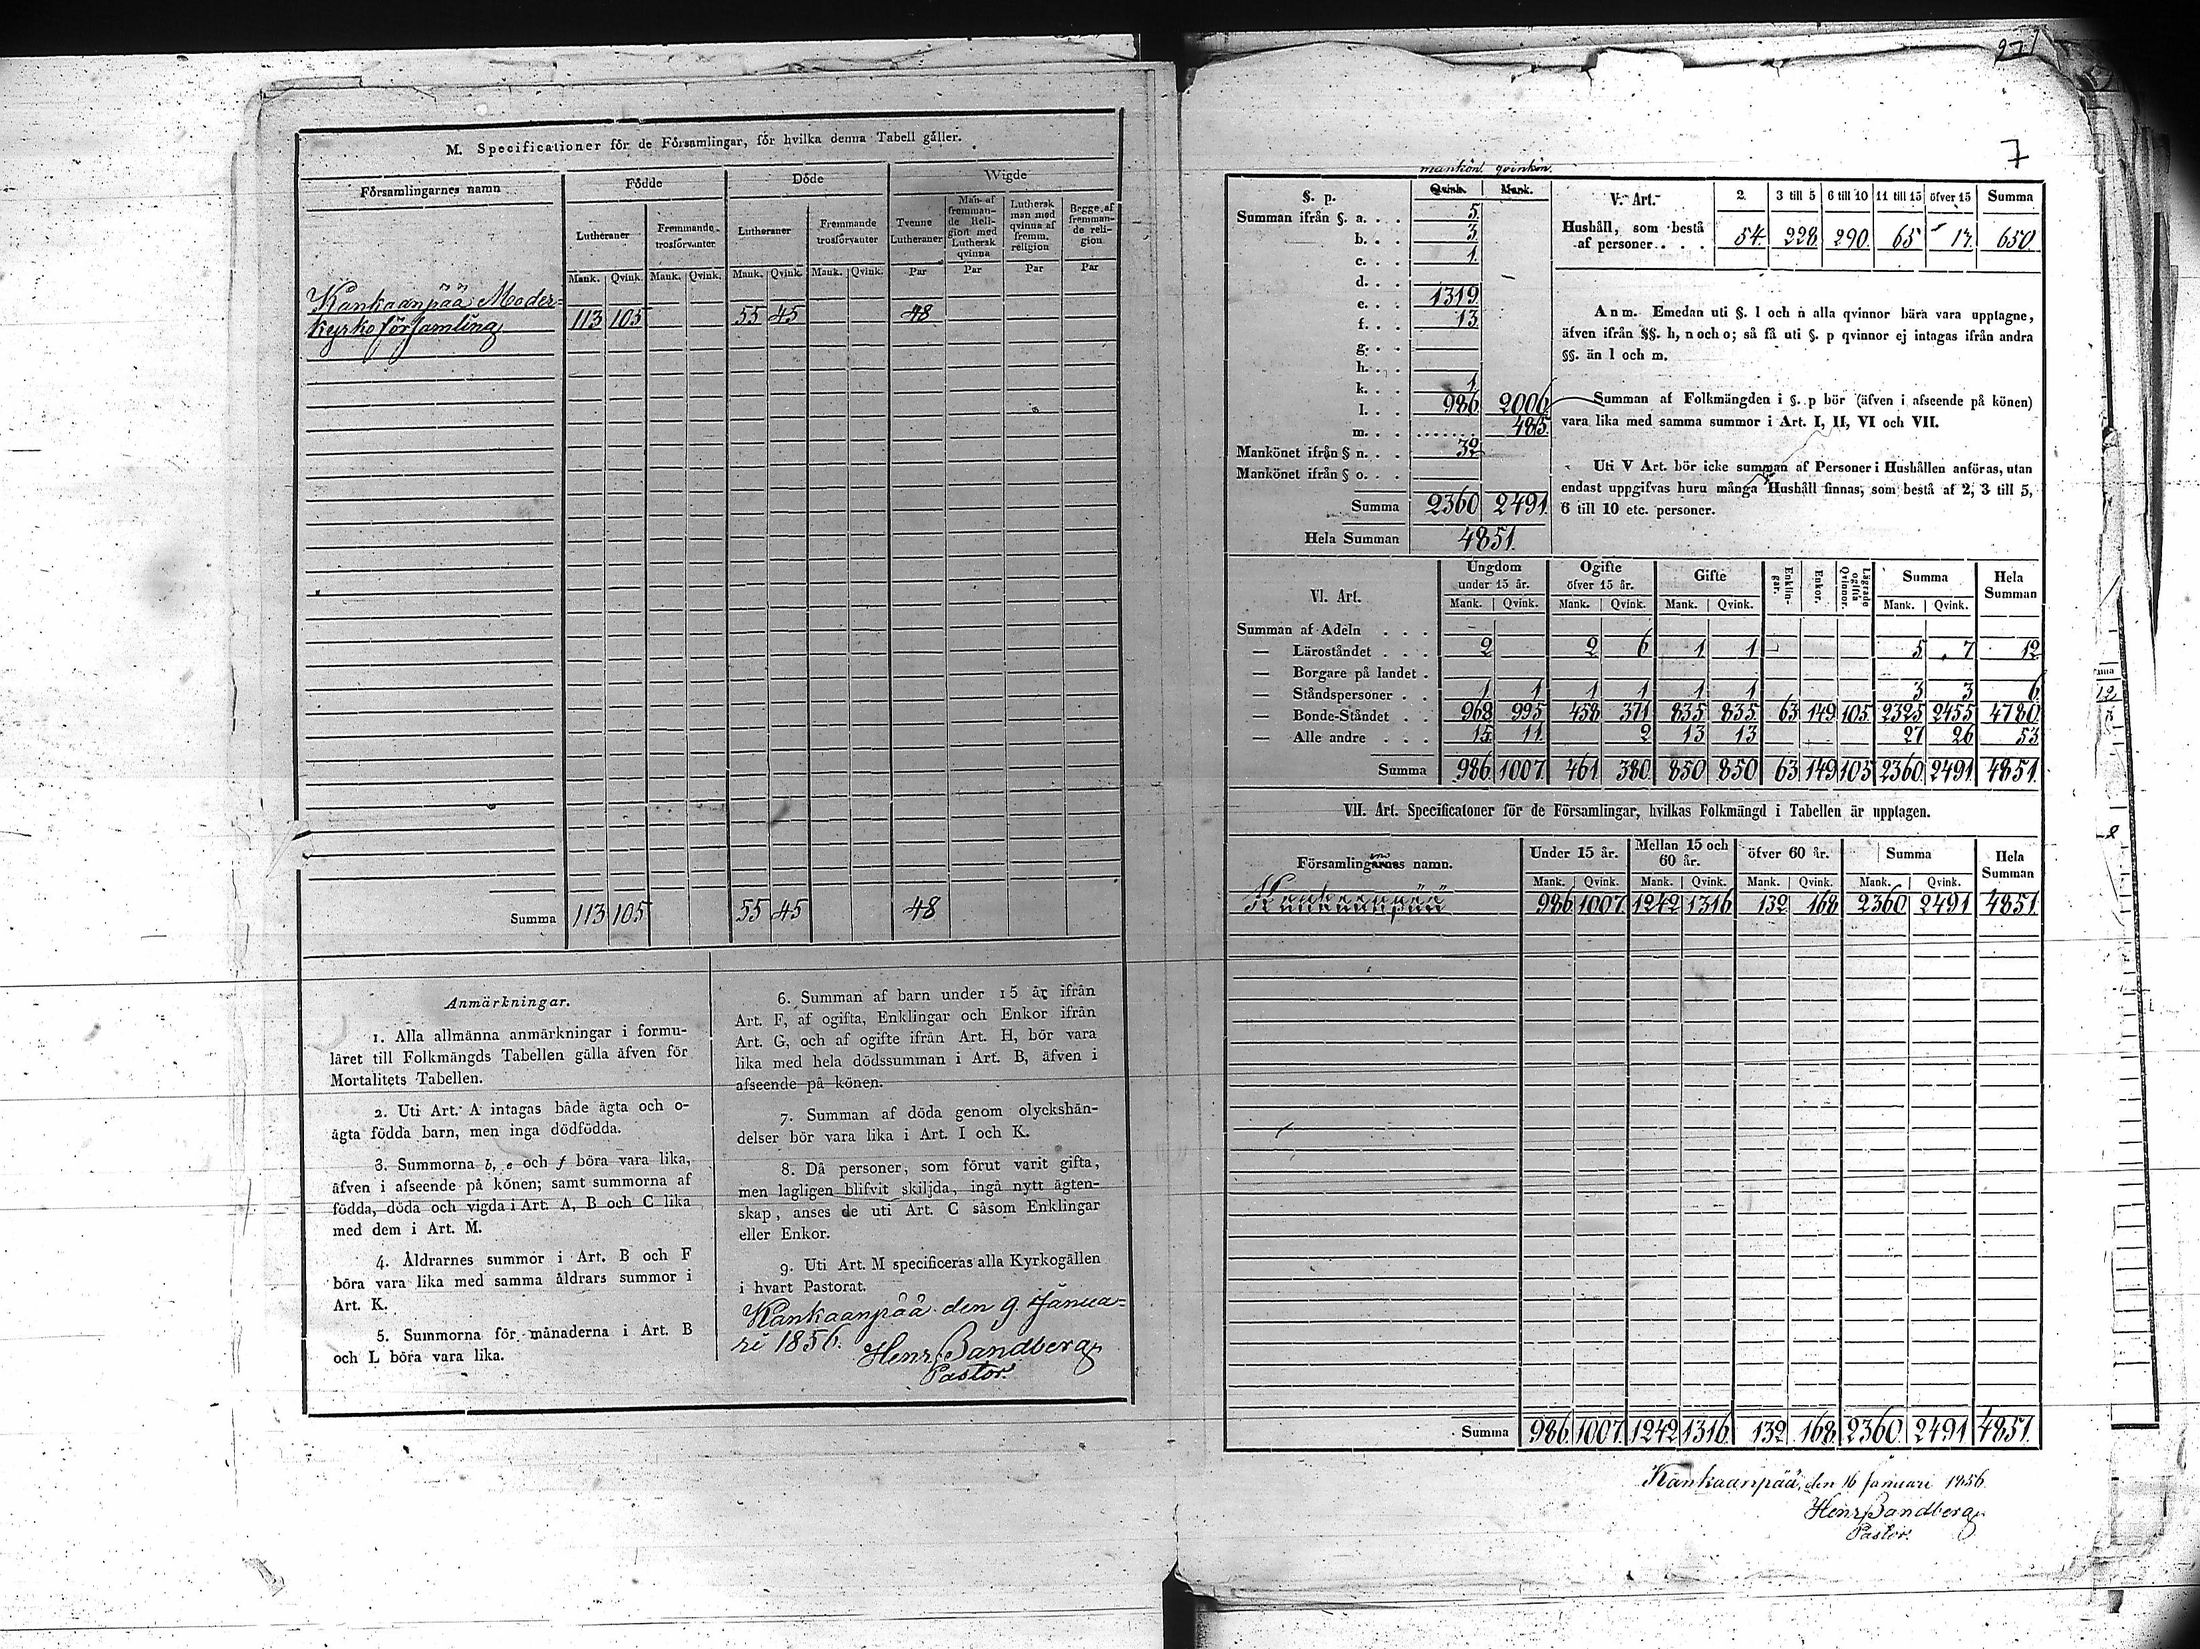 M. Specificationer för de Församlingar, för hvilka denna Tabell gäller.
Församlingarnes namn
Födde
Döde
Wigde
Lutheraner
Fremmande trosförvanter
Lutheraner
Fremmande trosförvanter
Tvenne Lutheraner
Man af fremmande Religion med Luthersk qvinna
Luthersk man med qvinna af fremm. religion
Begge af fremmande religion
Mank. Qvink. Mank. Qvink. Mank. Qvink. Mank. Qvink. Par Par Par Par
Kankaanpää Moder=
kyrko församling 113 105 55 45 48
Summa 113 105 55 45 48
Anmärkningar.
1. Alla allmänna anmärkningar i formu-
läret till Folkmängds Tabellen gälla äfven för
Mortalitets Tabellen.
2. Uti Art. A intagas både ägta och o-
ägta födda barn, men inga dödfödda.
3. Summorna b, e och f böra vara lika,
äfven i afseende på könen; samt summorna af
födda, döda och vigda i Art. A, B och C lika
med dem i Art. M.
4. Åldrarnes summor i Art. B och F
böra vara lika med samma åldrars summor i
Art. K.
5. Summorna för månaderna i Art. B
och L böra vara lika.
6. Summan af barn under 15 år ifrån
Art. F, af ogifta, Enklingar och Enkor ifrån
Art. G, och af ogifte ifrån Art. H, bör vara
lika med hela dödssumman i Art. B, äfven i
afseende på könen.
7. Summan af döda genom olyckshän-
delser bör vara lika i Art. I och K.
8. Då personer, som förut varit gifta,
men lagligen blifvit skiljda, ingå nytt ägten-
skap, anses de uti Art. C såsom Enklingar
eller Enkor.
9. Uti Art. M specificeras alla Kyrkogällen
i hvart Pastorat.
Kankaanpää den 9 Janua=
ri 1856.
Henr Sandberg
Pastor.
7
mankön. qvinkön.
§. p. Qvink. Mank.
Summan ifrån §. a. . . 5
b. . . 3
c. . . 1
d. . .
e. . . 1319
f. . . 13
g. . .
h. . .
k. . . 1
l. . . 986 2006
m. . . 485
Mankönet ifrån § n. . . 32
Mankönet ifrån § o. . .
Summa 2360 2491
Hela Summan 4851.
V. Art. 2. 3 till 5 6 till 10 11 till 15 öfver 15 Summa
Hushåll, som bestå
af personer. . . . 54. 228. 290. 65 17. 650.
Anm. Emedan uti §. l och n alla qvinnor bära vara upptagne,
äfven ifrån §§. h, n och o; så få uti §. p qvinnor ej intagas ifrån andra
§§. än l och m.
Summan af Folkmängden i §. p bör (äfven i afseende på könen)
vara lika med samma summor i Art. I, II, VI och VII.
Uti V Art. bör icke summan af Personer i Hushållen anföras, utan
endast uppgifvas huru många Hushåll finnas, som bestå af 2, 3 till 5,
6 till 10 etc. personer.
VI. Art.
Ungdom under 15 år.
Ogifte öfver 15 år.
Gifte
Enklingar.
Enkor.
Lägrade ogifta Qvinnor.
Summa
Hela Summan
Mank. Qvink. Mank. Qvink. Mank. Qvink. Mank. Qvink.
Summan af Adeln . . .
— Läroståndet . . . 2 2 6 1 1 5 7 12
— Borgare på landet .
— Ståndspersoner . . 1 1 1 1 1 1 3 3 6
— Bonde-Ståndet . . 968 995 458 371 835 835 63 149 105 2325 2455 4780
— Alle andre . . . 15 11 2 13 13 27 26 53
Summa 986 1007 461 380 850 850 63 149 105 2360 2491 4851
VII. Art. Specificatoner för de Församlingar, hvilkas Folkmängd i Tabellen är upptagen.
Församlingarnes namn.
Under 15 år.
Mellan 15 och 60 år.
öfver 60 år.
Summa
Hela Summan
Mank. Qvink. Mank. Qvink. Mank. Qvink. Mank. Qvink.
Kankaanpää 986 1007 1242 1316 132 168 2360 2491 4851
Summa 986 1007 1242 1316 132 168 2360 2491 4851
Kankaanpää, den 16 Januari 1856
Henr Sandberg
Pastor.